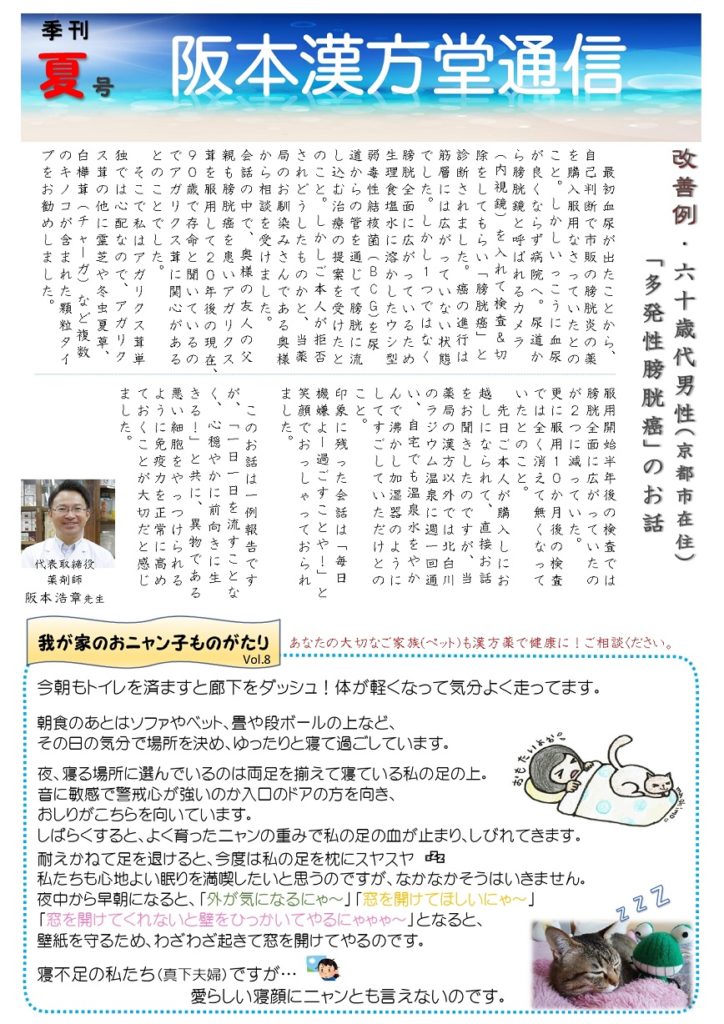 季刊
夏号
阪本漢方堂通信
改善例・六十歳代男性(京都市在住)
「多発性膀胱癌」のお話
最初血尿が出たことから、
自己判断で市販の膀胱炎の薬
を購入服用なさっていたとの
こと。しかしいっこうに血尿
が良くならず病院へ。尿道か
ら膀胱鏡と呼ばれるカメラ
(内視鏡)を入れて検査&切
除をしてもらい「膀胱癌」と
診断されました。癌の進行は
筋層には広がっていない状態
でした。しかし1つではなく
膀胱全面に広がっているため
生理食塩水に溶かしたウシ型
弱毒性結核菌(BCG)を尿
道からの管を通じて膀胱に流
し込む治療の提案を受けたと
のこと。しかしご本人が拒否
されどうしたものかと、当薬
局のお馴染みさんである奥様
から相談を受けました。
会話の中で、奥様の友人の父
親も膀胱癌を患いアガリクス
茸を服用して20年後の現在、
90歳で存命と聞いているの
でアガリクス茸に関心がある
とのことでした。
そこで私はアガリクス茸単
独では心配なので、アガリク
ス茸の他に霊芝や冬虫夏草、
白樺茸(チャーガ)など複数
のキノコが含まれた顆粒タイ
プをお勧めしました。
服用開始半年後の検査では
膀胱全面に広がっていたの
が2つに減っていた。
更に服用10か月後の検査
では全く消えて無くなって
いたとのこと。
先日ご本人が購入しにお
越しになられて、直接お話
をお聞きしたのですが、当
薬局の漢方以外では北白川
のラジウム温泉に週一回通
い、自宅でも温泉水をやか
んで沸かし加湿器のように
してすごしていただけとの
こと。
印象に残った会話は「毎日
機嫌よー過ごすことや!」と
笑顔でおっしゃっておられ
ました。
このお話は一例報告です
が、「一日一日を流すことな
く、心穏やかに前向きに生
きる!」と共に、異物である
悪い細胞をやっつけられる
ように免疫力を正常に高め
ておくことが大切だと感じ
ました。
代表取締役
薬剤師
阪本浩章先生
我が家のおニャン子ものがたり
Vol.8
あなたの大切なご家族(ペット)も漢方薬で健康に!ご相談ください。
今朝もトイレを済ますと廊下をダッシュ!体が軽くなって気分よく走ってます。
朝食のあとはソファやベット、畳や段ボールの上など、
その日の気分で場所を決め、ゆったりと寝て過ごしています。
夜、寝る場所に選んでいるのは両足を揃えて寝ている私の足の上。
音に敏感で警戒心が強いのか入口のドアの方を向き、
おしりがこちらを向いています。
しばらくすると、よく育ったニャンの重みで私の足の血が止まり、しびれてきます。
耐えかねて足を退けると、今度は私の足を枕にスヤスヤ 💤
私たちも心地よい眠りを満喫したいと思うのですが、なかなかそうはいきません。
夜中から早朝になると、「外が気になるにゃ~」「窓を開けてほしいにゃ~」
「窓を開けてくれないと壁をひっかいてやるにゃゃゃ~」となると、
壁紙を守るため、わざわざ起きて窓を開けてやるのです。
寝不足の私たち(真下夫婦)ですが…
愛らしい寝顔にニャンとも言えないのです。
おもたいよぉ
zzz